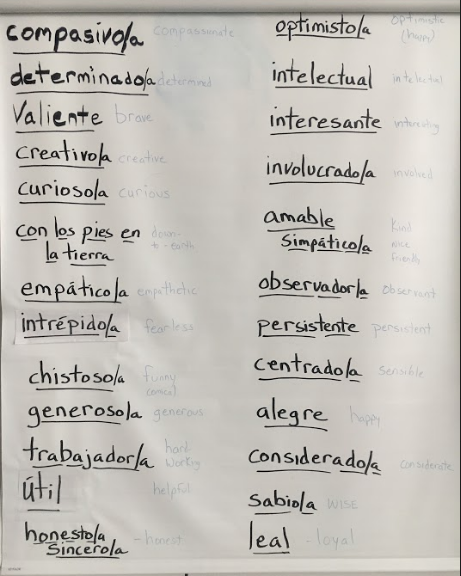 compasivo/a compassionate
determinado/a determined
Valiente brave
creativo/a creative
curioso/a curious
con los pies en down-
la tierra to-earth
empático/a empathetic
intrépido/a fearless
chistoso/a funny
(comical)
generoso/a generous
trabajador/a hard
working
útil helpful
honesto/a - honest
sincero/a
optimisto/a optimistic
(happy)
intelectual intellectual
interesante interesting
involucrado/a involved
amable kind
simpático/a nice
friendly
observador/a observant
persistente persistent
centrado/a sensible
alegre happy
considerado/a considerate
sabio/a WISE
leal - loyal